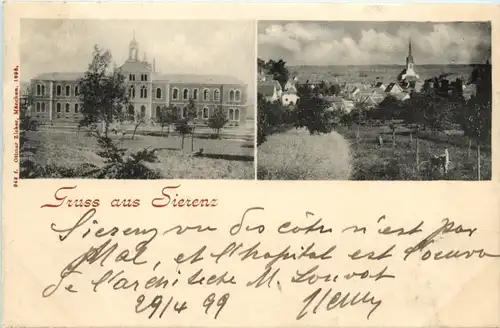 942 f. Ottmar Zieher, München. 1898.
Gruss aus Sierenz
Sierenz vu des côtés n'est pas
mal, et l'hopital est l'oeuvre
de l'architecte M. Louvat
29/4 99